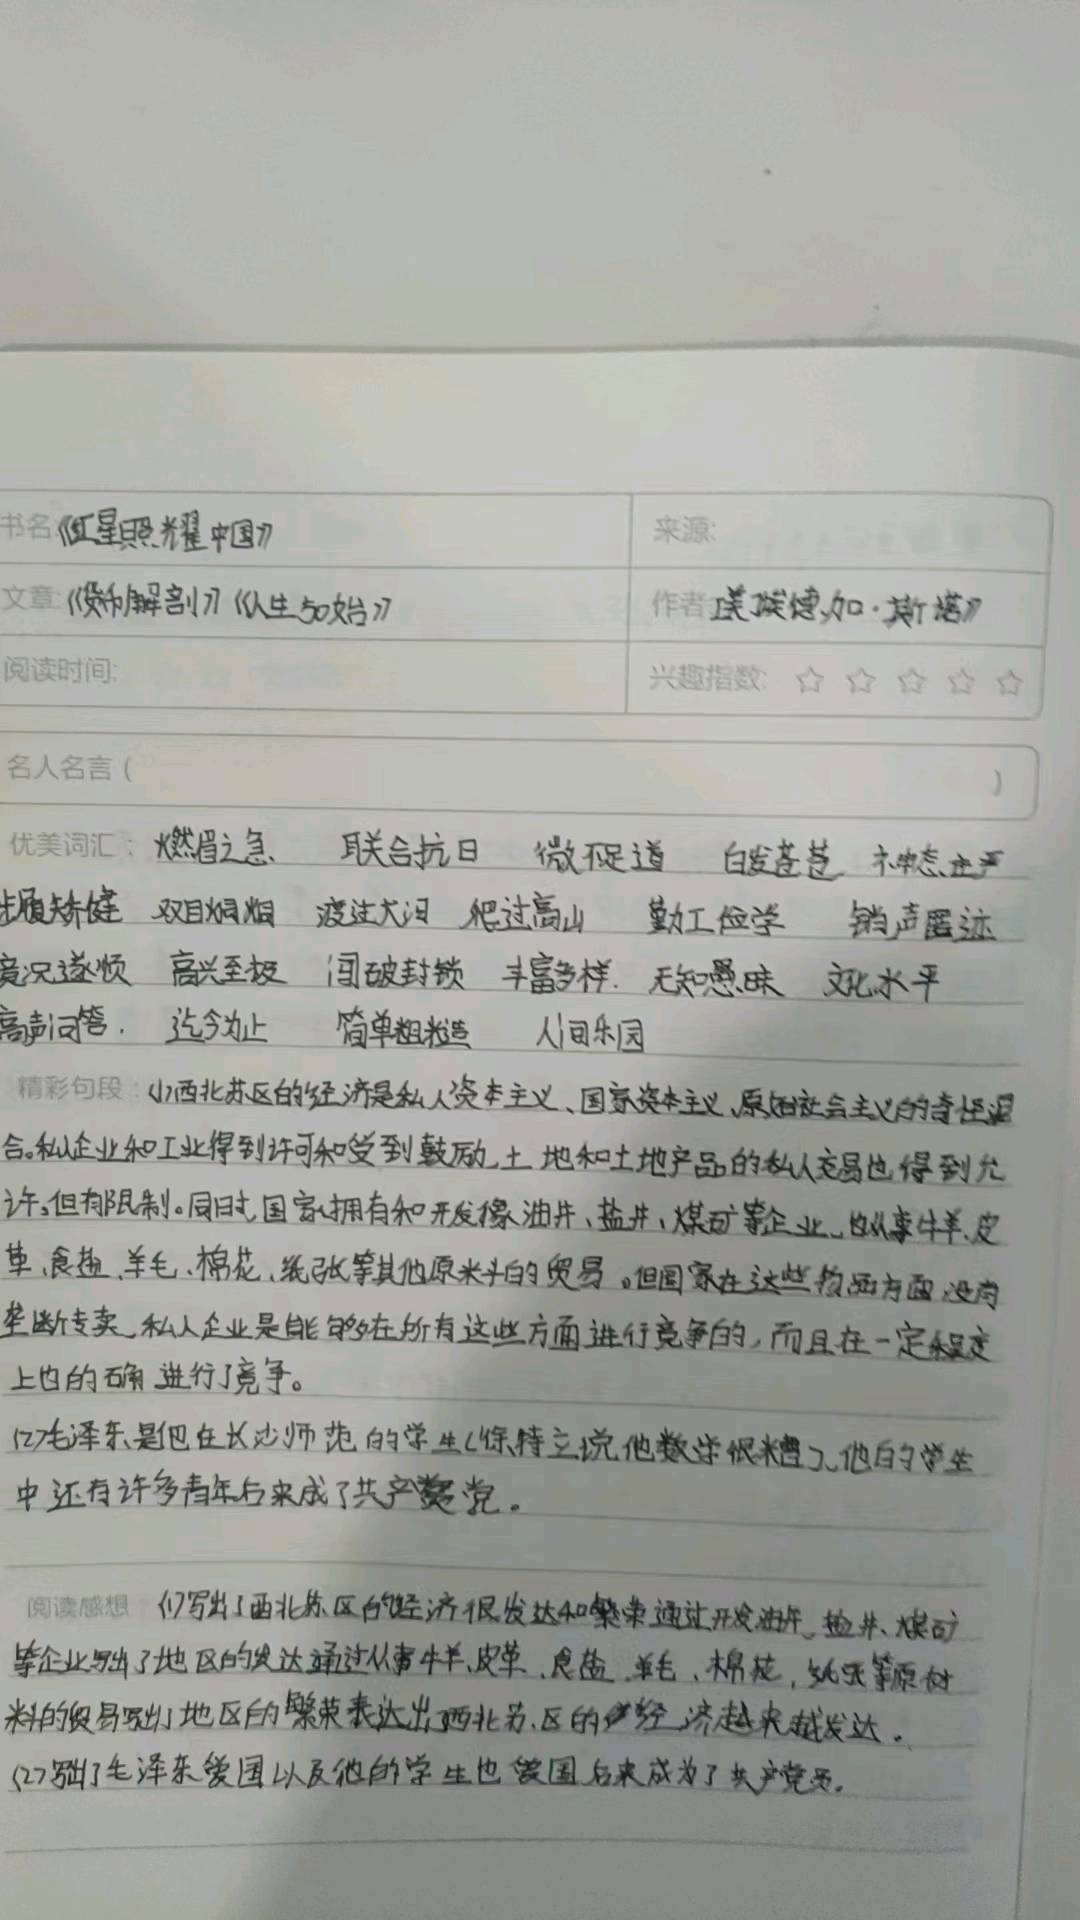 书名:《红星照耀中国》 来源:
文章:《货币解剖》《人生50始》 作者:[美]埃德加·斯诺》
阅读时间: 兴趣指数: ☆ ☆ ☆ ☆ ☆
名人名言( )
优美词汇: 燃眉之急 联合抗日 微不足道 白发苍苍 神态庄严
步履矫健 双目炯炯 渡过大河 爬过高山 勤工俭学 销声匿迹
境况遂顺 高兴至极 闯破封锁 丰富多样. 无知愚昧 文化水平
高声问答. 迄今为止 简单粗糙 人间乐园
精彩句段: (1)西北苏区的经济是私人资本主义、国家资本主义、原始社会主义的奇怪混
合。私人企业和工业得到许可和受到鼓励,土地和土地产品的私人交易也得到允
许,但有限制。同时国家拥有和开发像油井、盐井、煤矿等企业,也从事牛羊、皮
革、食盐、羊毛、棉花、纸张等其他原料的贸易。但国家在这些物品方面没有
垄断专卖,私人企业是能够在所有这些方面进行竞争的,而且在一定程度
上也的确进行了竞争。
(2)毛泽东是他在长沙师范的学生(徐特立说他数学很糟),他的学生
中还有许多青年后来成了共产党。
阅读感想 (1)写出了西北苏区的经济很发达和繁荣通过开发油井、盐井、煤矿
等企业写出了地区的发达通过从事牛羊、皮革、食盐、羊毛、棉花,纸张等原材
料的贸易写出了地区的繁荣表达出了西北苏区的经济越来越发达。
(2)写出了毛泽东爱国以及他的学生也爱国后来成为了共产党员。